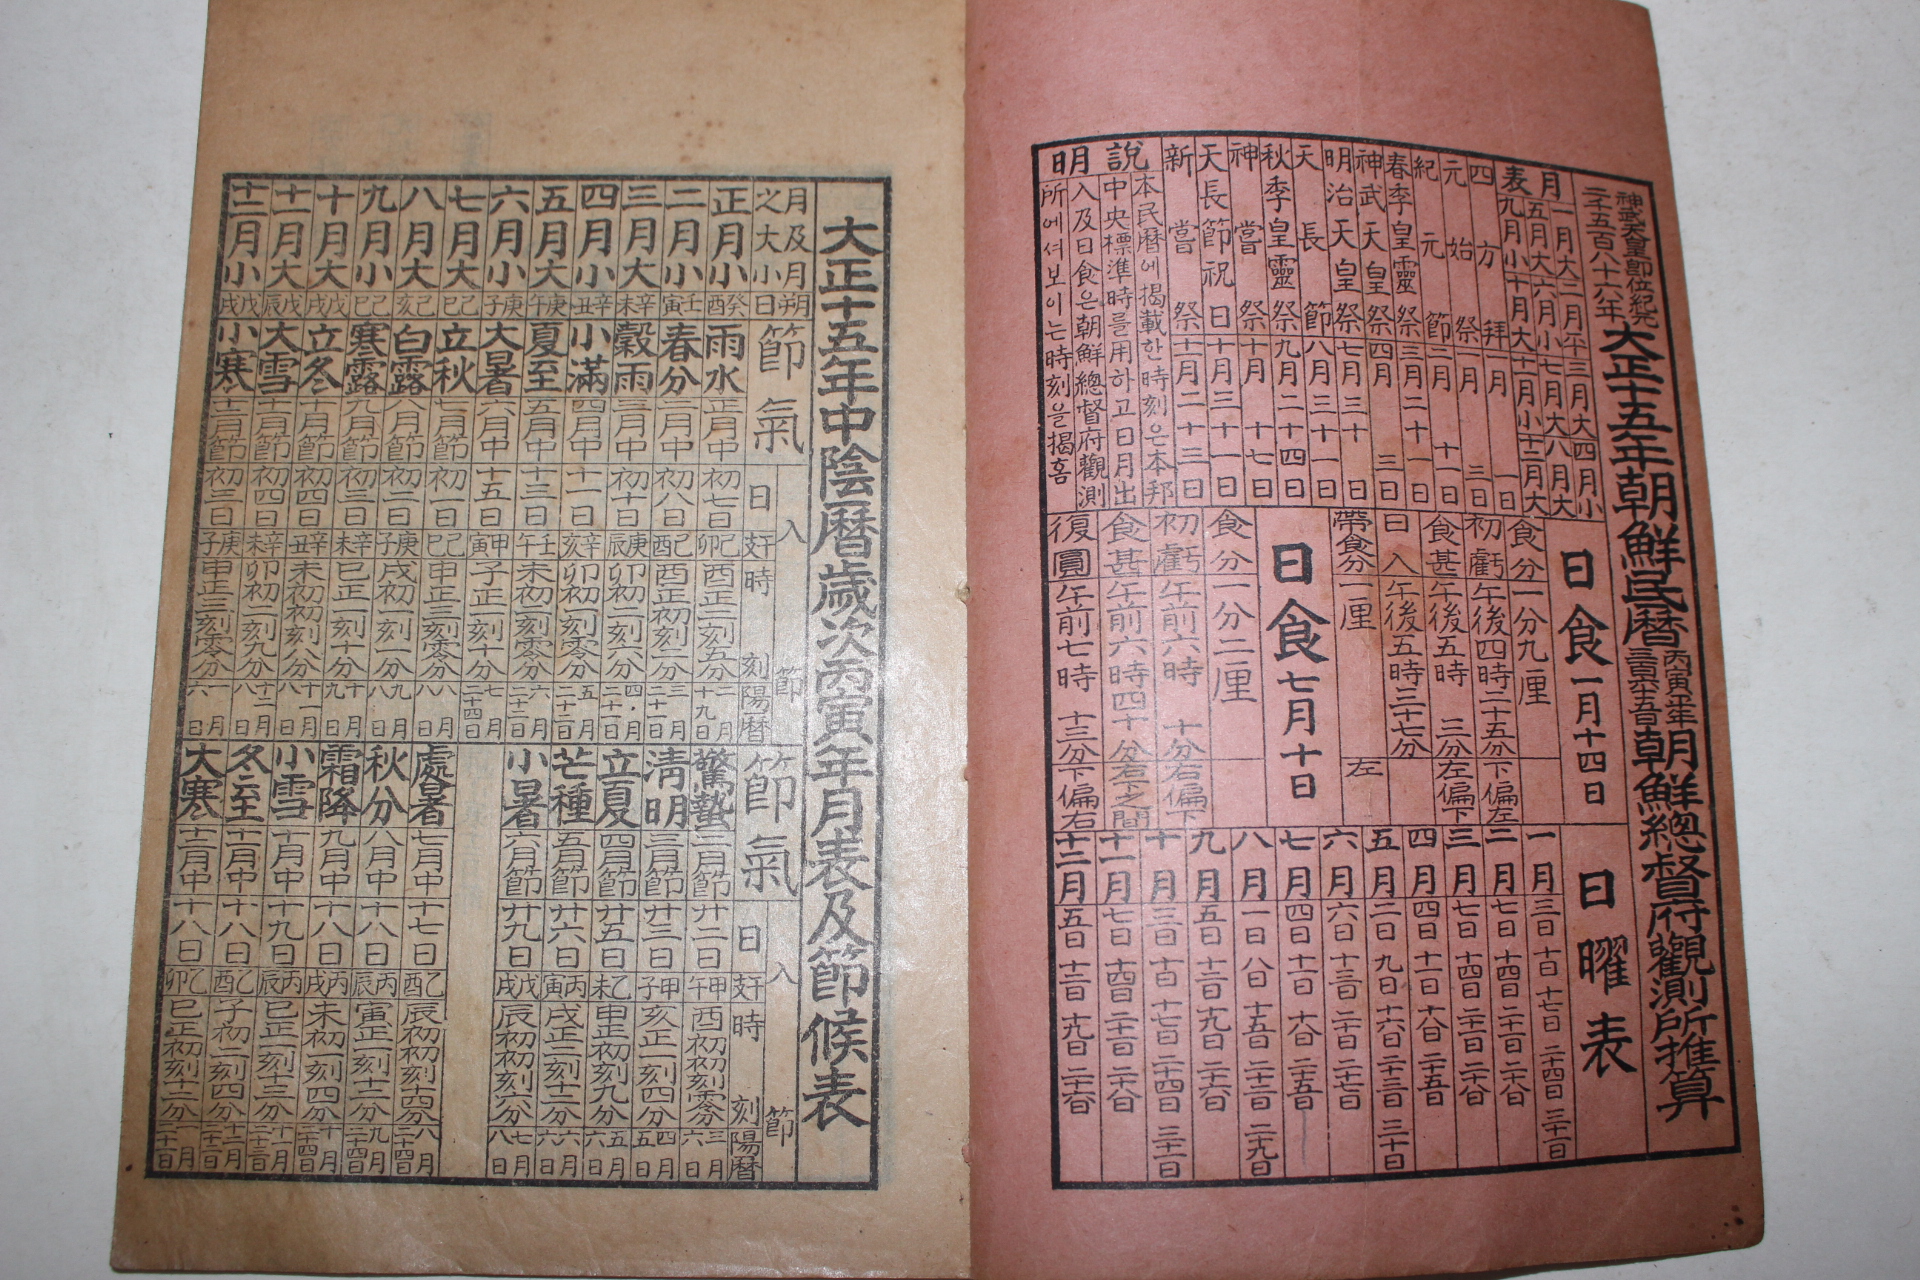 神武天皇卽位紀元
二千五百八十六年
大正十五年朝鮮民曆
丙寅平年
三百六十五日
朝鮮總督府觀測所推算
月表
一月大二月平三月大四月小
五月大六月小七月大八月大
九月小十月大十一月小十二月大
四方拜一月一日
元始祭一月三日
紀元節二月十一日
春季皇靈祭三月二十一日
神武天皇祭四月三日
明治天皇祭七月三十日
天長節八月三十一日
秋季皇靈祭九月二十四日
神嘗祭十月十七日
天長節祝日十月三十一日
新嘗祭十一月二十三日
說明
本民曆에揭載한時刻은本邦
中央標準時를用하고日月出
入及日食은朝鮮總督府觀測
所에셔보이는時刻을揭홈
日食一月十四日
食分一分九厘
初虧午後四時二十五分下偏左
食甚午後五時三分左偏下
日入午後五時三十七分
帶食分一厘左
日食七月十日
食分一分二厘
初虧午前六時十分右偏下
食甚午前六時四十分右下之間
復圓午前七時十三分下偏右
日曜表
一月三日十日十七日二十四日三十一日
二月七日十四日二十一日二十八日
三月七日十四日二十一日二十八日
四月四日十一日十八日二十五日
五月二日九日十六日二十三日三十日
六月六日十三日二十日二十七日
七月四日十一日十八日二十五日
八月一日八日十五日二十二日二十九日
九月五日十二日十九日二十六日
十月三日十日十七日二十四日三十一日
十一月七日十四日二十一日二十八日
十二月五日十二日十九日二十六日
大正十五年中陰曆歲次丙寅年月表及節候表
月及月之大小
朔日
節氣
入節
日
干支
時刻
陽曆
正月小癸酉雨水正月中初七日己卯酉正二刻五分二月十九日
二月小壬寅春分二月中初八日己酉酉正初刻二分三月二十一日
三月大辛未穀雨三月中初十日庚辰卯初二刻六分四月二十一日
四月小辛丑小滿四月中十一日辛亥卯初一刻零分五月二十二日
五月大庚午夏至五月中十三日壬午未初二刻零分六月二十二日
六月小庚子大暑六月中十五日甲寅子正二刻十分七月二十四日
七月大己巳立秋七月節初一日己巳申正三刻零分八月八日
八月大己亥白露八月節初二日庚子戌初一刻一分九月八日
九月小己巳寒露九月節初三日辛未巳正二刻十分十月九日
十月大戊戌立冬十月節初四日辛丑未初初刻八分十一月八日
十一月大戊辰大雪十一月節初四日辛未卯初二刻九分十二月八日
十二月小戊戌小寒十二月節初三日庚子申正三刻零分一月六日
節氣
入節
日
干支
時刻
陽曆
驚蟄二月節廿二日甲午酉初初刻零分三月六日
淸明三月節廿三日甲子亥正一刻四分四月五日
立夏四月節廿五日乙未申正初刻九分五月六日
芒種五月節廿六日丙寅戌正二刻十二分六月六日
小暑六月節廿九日戊戌辰初初刻六分七月八日
處暑七月中十七日乙酉辰初初刻四分八月二十四日
秋分八月中十八日丙辰寅正一刻十二分九月二十四日
霜降九月中十八日丙戌未初一刻四分十月二十四日
小雪十月中十九日丙辰巳正一刻十三分十一月二十三日
冬至十一月中十八日乙酉子初二刻四分十二月二十二日
大寒十二月中十八日乙卯巳正初刻十二分一月二十一日